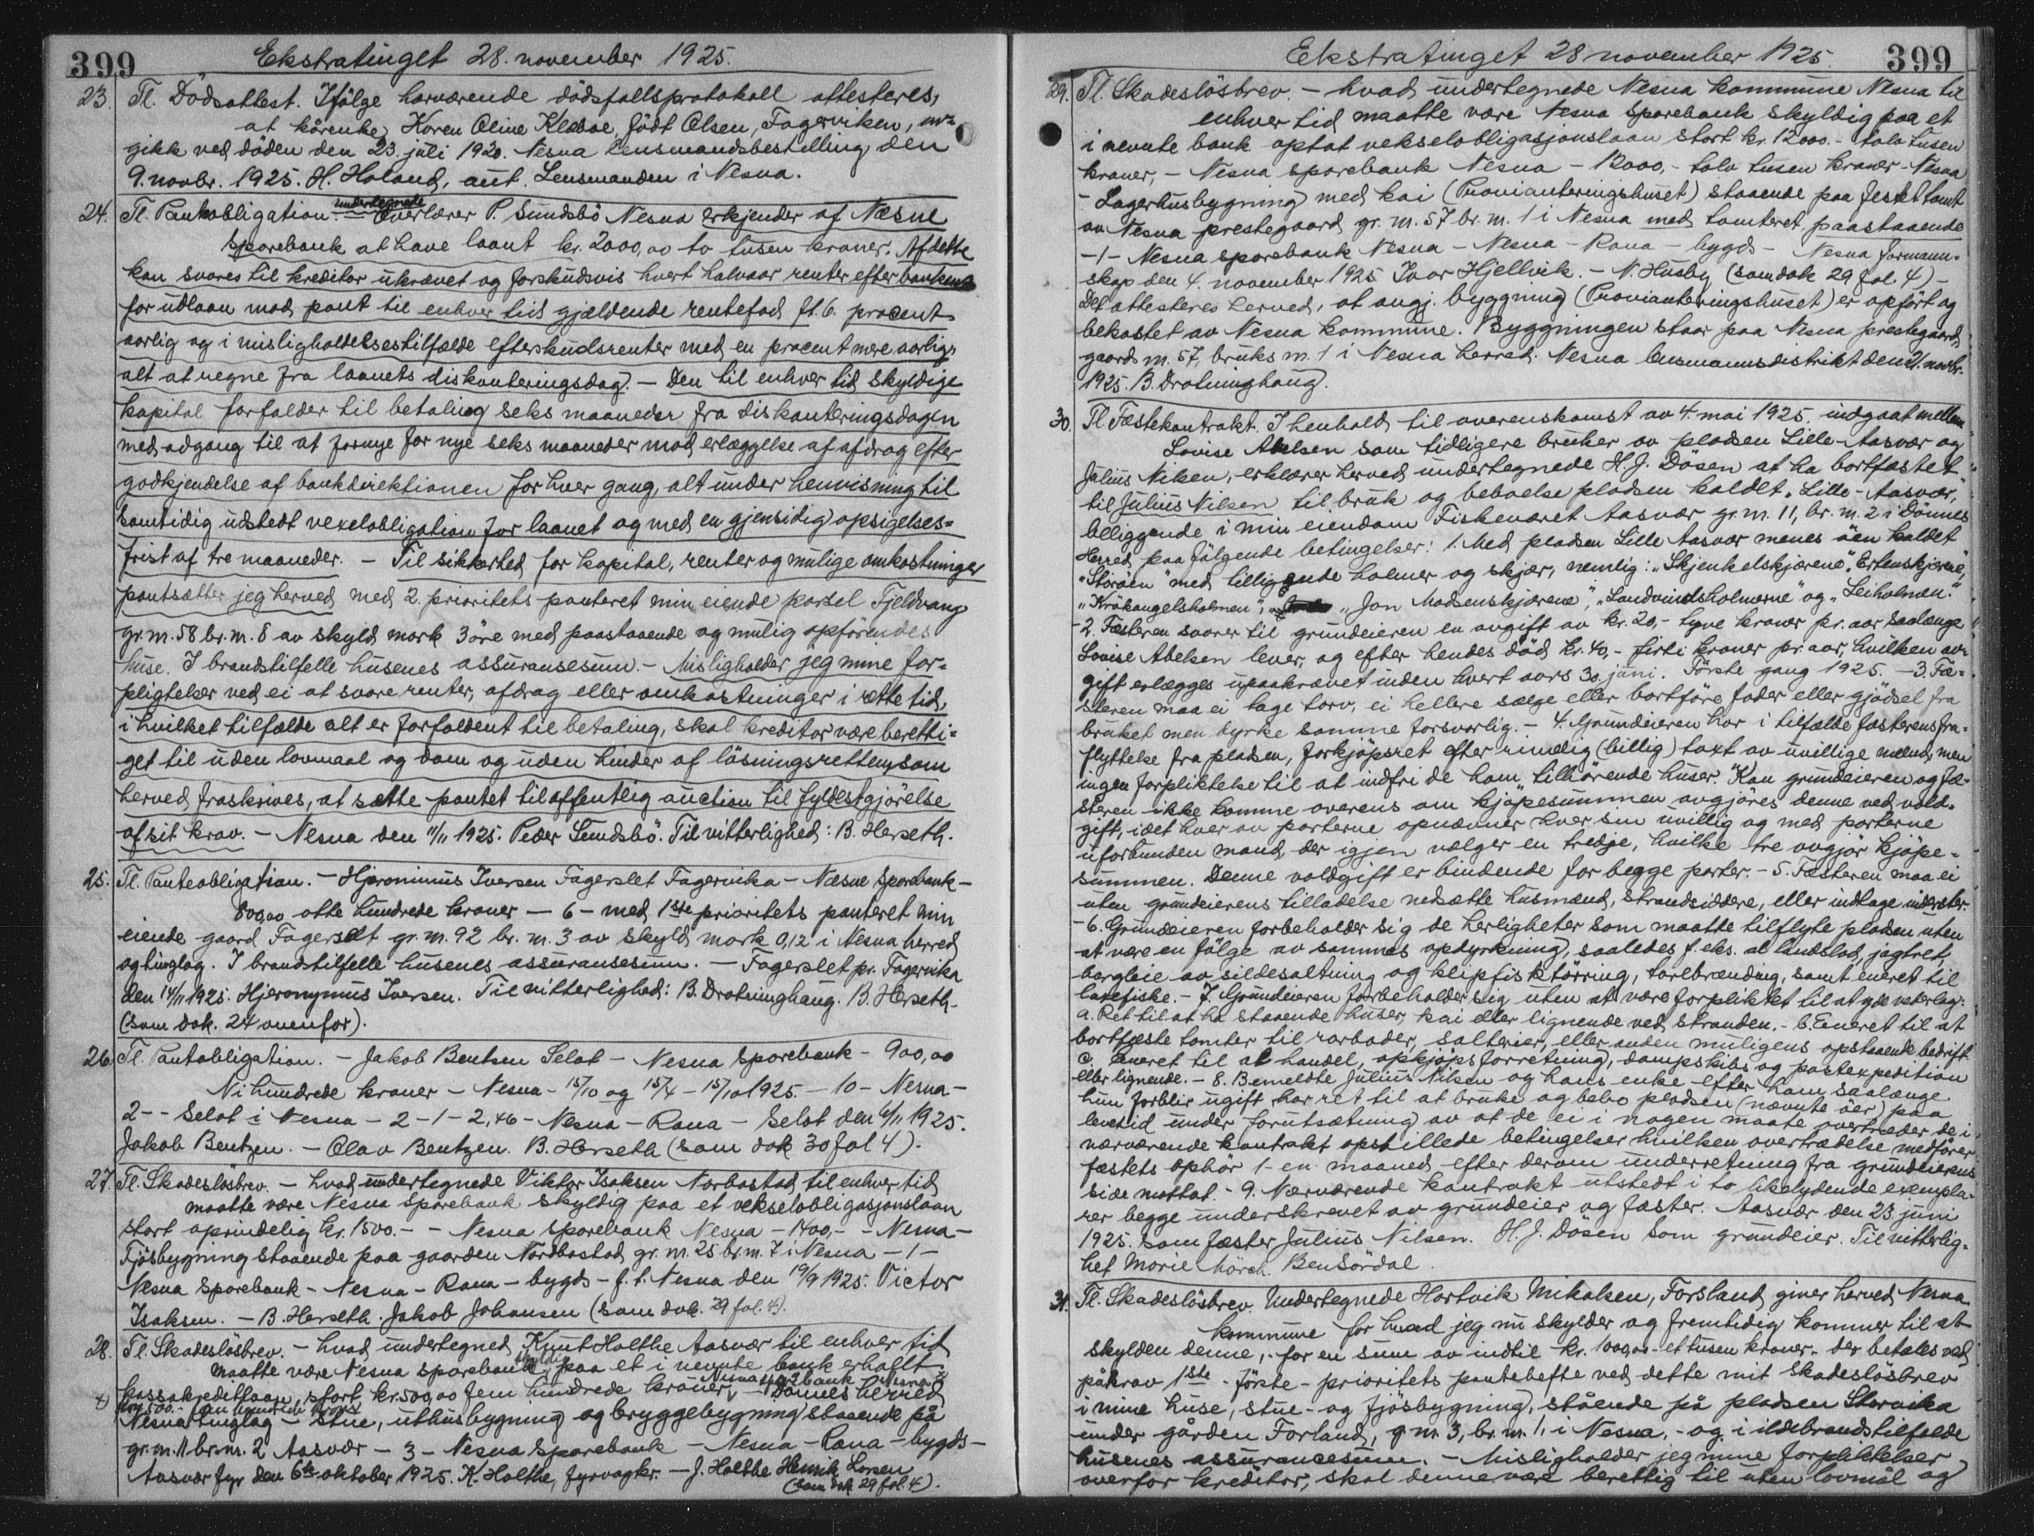 399
Ekstratinget 28. november 1925.
23. Tl. Dödsattest. Ifölge harværende dödsfallsprotokoll attesteres,
at kårenke Karen Oline Klæboe, født Olsen, Fagerviken, av-
gikk ved döden den 23 juli 1920. Nesna lensmandsbestilling den
9. novbr. 1925. H. Haland, aut. Lensmanden i Nesna.
24. Tl. Pantobligation. - undertegnede Overlærer P. Sundsbö Nesna erkjender af Næsne
Sparebank at have laant kr. 2000,00 to tusen kroner. Af dette
kan svares til kreditor ukrævet og forskudsvis hvert halvaar renter efter bankens
for udlaan mod pant til enhver tid gjældende rentefod ft. 6. procent
aarlig og i misligholdelsestilfælde efterskudsrenter med en procent mere aarlig,
alt at regne fra laanets diskonteringsdag. - Den til enhver tid skyldige
kapital forfalder til betaling seks maaneder fra diskonteringsdagen
med adgang til at fornye for nye seks maaneder mod erlæggelse af afdrag efter
godkjendelse af bankdirektionen for hver gang, alt under henvisning til
samtidig udstedt vexelobligation for laanet og med en gjensidig opsigelses-
frist af tre maaneder. - Til sikkerhed for kapital, renter og mulige omkostninger
pantsætter jeg herved med 2 prioritets panteret min eiende parsel Fjeldvang
gr. nr. 58 br. nr. 8 av skyld mark 3 öre med paastaaende og mulig opförendes
huse. I brandstilfelle husenes assuransesum. - Misligholder jeg mine for-
pligtelser ved ei at svare renter, afdrag eller omkostninger i rette tid,
i hvilket tilfælde alt er forfaldent til betaling, skal kreditor være beretti-
get til uden lovmaal og dom og uden hinder af lösningsretten, som
herved fraskrives, at sætte pantet til offentlig auction til fyldestgjörelse
af sit krav. - Nesna den 11/11 1925. Peder Sundsbö. Til vitterlighed: B. Herseth.
25. Tl. Panteobligation. - Hjeronimus Iversen Fagerslet Fagervika - Næsne Sparebank -
800,00 otte hundrede kroner - 6 - med 1ste prioritets panteret min
eiende gaard Fagerslet gr. nr. 92 br. nr. 3 av skyld mark 0,12 i Nesna herred
og tinglag. I brandstilfelle husenes assuransesum. - Fagerslet pr. Fagervika
den 14/11 1925. Hjeronymus Iversen. Til vitterlighed: B. Drotninghaug. B. Herseth
(som dok. 24 ovenfor).
26. Tl. Pantobligation. - Jakob Bentsen Selot - Nesna Sparebank - 900,00
Ni hundrede kroner - Nesna - 15/10 og 15/4 - 15/10 1925. - 10 - Nesna -
2 - - Selot i Nesna - 2 - 1 - 2,46 - Nesna - Rana - Selot den 4/11 1925.
Jakob Bentzen. - Olav Bentzen. B. Herseth (som dok 30 fol 4).
27. Tl. Skadeslösbrev. - hvad undertegnede Viktor Isaksen Norbostad til enhver tid
maatte være Nesna Sparebank skyldig paa et vekselobligasjonslaan
stort oprindelig kr. 1500.- - Nesna Sparebank Nesna - 1400,- - Nesna -
Fjösbygning staaende paa gaarden Nordbostad gr. nr. 25 br. nr. 7 i Nesna - 1 -
Nesna Sparebank - Nesna - Rana - bygds - f. t. Nesna den 19/9 1925. Victor
Isaksen. - B. Herseth. Jakob Johansen (som dok. 29 fol. 4).
28. Tl. Skadeslösbrev. - hvad undertegned Knut Holthe Aasvær til enhver tid
maatte være Nesna Sparebank skyldig paa et i nevnte bank erholdt
kassakreditlaan stort kr. 500,00 fem hundrede kroner, Nesna sparebank Nesna - Dönnes herred
kr. 500.- fem hundrede kroner
Nesna tinglag - stue, uthusbygning og bryggebygning staaende på
gr. nr. 11 br. nr. 2 Aasvær - 3 - Nesna Sparebank - Nesna - Rana - bygds -
Aasvær fyr den 6te oktober 1925. K. Holthe, fyrvogter. - J. Holthe Henrik Larsen
(som dok 29 fol. 4).
Ekstratinget 28 november 1925.
399
29. Tl. Skadeslösbrev - hvad undertegnede Nesna kommune Nesna til
enhver tid maatte være Nesna Sparebank skyldig paa et
i nevnte bank optat vekselobligasjonslaan stort kr. 12000.- tolv tusen
kroner, - Nesna sparebank Nesna - 12000,- tolv tusen kroner - Nesna
- Lagerhusbygning med kai (Provianteringshuset) staaende paa festet tomt
av Nesna prestegaard gr. nr. 57 br. nr. 1 i Nesna med tomteret paastaaende
- 1 - Nesna sparebank Nesna - Nesna - Rana - bygds - Nesna formann-
skap den 4. november 1925 Ivar Hjellvik. - N. Husby (som dok 29 fol. 4) -
Det attesteres herved, at angj. byggning (Provianteringshuset) er opfört og
bekostet av Nesna kommune. Byggningen staar paa Nesna prestegaard,
gaards nr. 57, bruks nr. 1 i Nesna herred. Nesna lensmannsdistrikt den 21. novbr.
1925. B. Drotninghaug.
30. Tl. Fæstekontrakt. I henhold til overenskomst av 4. mai 1925 indgaat mellem
Lovise Abelsen som tidligere bruker av pladsen Lille-Aasvær og
Julius Nilsen, erklærer herved undertegnede H. J. Dösen at ha bortfæstet
til Julius Nilsen til bruk og beboelse pladsen kaldet "Lille-Aasvær,"
beliggende i min eiendom Fiskeværet Aasvær gr. nr. 11, br. nr. 2 i Dönnes
Herred paa fölgende betingelser: 1. Med pladsen Lille Aasvær menes öen kaldet
"Storöen" med tilliggende holmer og skjær, nemlig: "Skjenkelskjærene", "Ertenskjærene",
"Kråkangelsholmen", "Jon Madsenskjærene", "Sandvindsholmerne" og "Leiholmen".
- 2. Fæsteren svarer til grundeieren en avgift av kr. 20,- tyve kroner pr. aar saalænge
Lovise Abelsen lever, og efter hendes död kr. 40,- firti kroner pr. aar, hvilken av-
gift erlægges upaakrævet inden hvert aars 30 juni. Förste gang 1925. - 3. Fæ-
steren maa ei tage torv, ei hellere sælge eller bortföre foder eller gjödsel fra
bruket men dyrke samme forsvarlig. - 4. Grundeieren har i tilfælde fæsterens fra-
flyttelse fra pladsen, forkjöpsret efter rimelig (billig) taxt av uvillige mænd, men
ingen forpliktelse til at indfri de ham tilhörende huser. Kan grundeieren og fæ-
steren ikke komme overens om kjöpesummen avgjöres denne ved vold-
gift, idet hver av parterne opnævner hver sin uvillig og med parterne
uforbunden mand, der igjen vælger en tredje, hvilke tre avgjör kjöpe-
summen. Denne voldgift er bindende for begge parter. - 5. Fæsteren maa ei
uten grundeierens tilladelse nedsætte husmænd, strandsiddere, eller indtage inderster.
- 6. Grundeieren forbeholder sig de herligheter som maatte tilflyte pladsen uten
at være en fölge av sammes opdyrkning, saaledes f. eks. al landslod, jagtret,
bergleie av sildesaltning og klipfisktörring, tarebrænding, samt eneret til
laxefiske. - 7. Grundeieren forbeholder sig uten at være forpliktet til at yde vederlag:
a. Ret til at ha staaende huser, kai eller lignende ved stranden. - b. Eneret til at
bortfæste tomter til rorboder, salterier, eller anden muligens opstaaende bedrift
c. Eneret til al handel, opkjöpsforretning, dampskibs og postexpedition
eller lignende. - 8. Bemeldte Julius Nilsen og hans enke efter ham saalænge
hun forblir ugift har ret til at bruke og bebo pladsen (nævnte öer) paa
levetid under forutsætning av at de ei i nogen maate overtræder de i
nærværende kontrakt opstillede betingelser hvilken overtrædelse medförer
fæstets ophör 1 - en maaned efter derom underretning fra grundeierens
side mottat. - 9. Nærværende kontrakt utstedt i to likelydende exempla-
rer begge underskrevet av grundeier og fæster. Aasvær den 23 juni
1925. Som fæster Julius Nilsen. H. J. Dösen som grundeier. Til vitterlig-
het Marie Lörch. Ben Sördal.
31. Tl. Skadeslösbrev. Undertegnede Hartvik Mikalsen, Forsland, giver herved Nesna
kommune for hvad jeg nu skylder og fremtidig kommer til at
skylden denne, - for en sum av indtil kr. 1000,00 - et tusen kroner - der betales ved
påkrav 1ste - förste - prioritets pantehefte ved dette mit skadeslösbrev
i mine huse, stue- og fjösbygning, stående på pladsen Storvika
under gården Forland, g. nr. 3, br. nr. 1, i Nesna, - og i ildebrandstilfælde
husenes assurancesum. - Misligholder jeg mine forpliktelser
overfor kreditor, skal denne være berettig til uten lovmål og